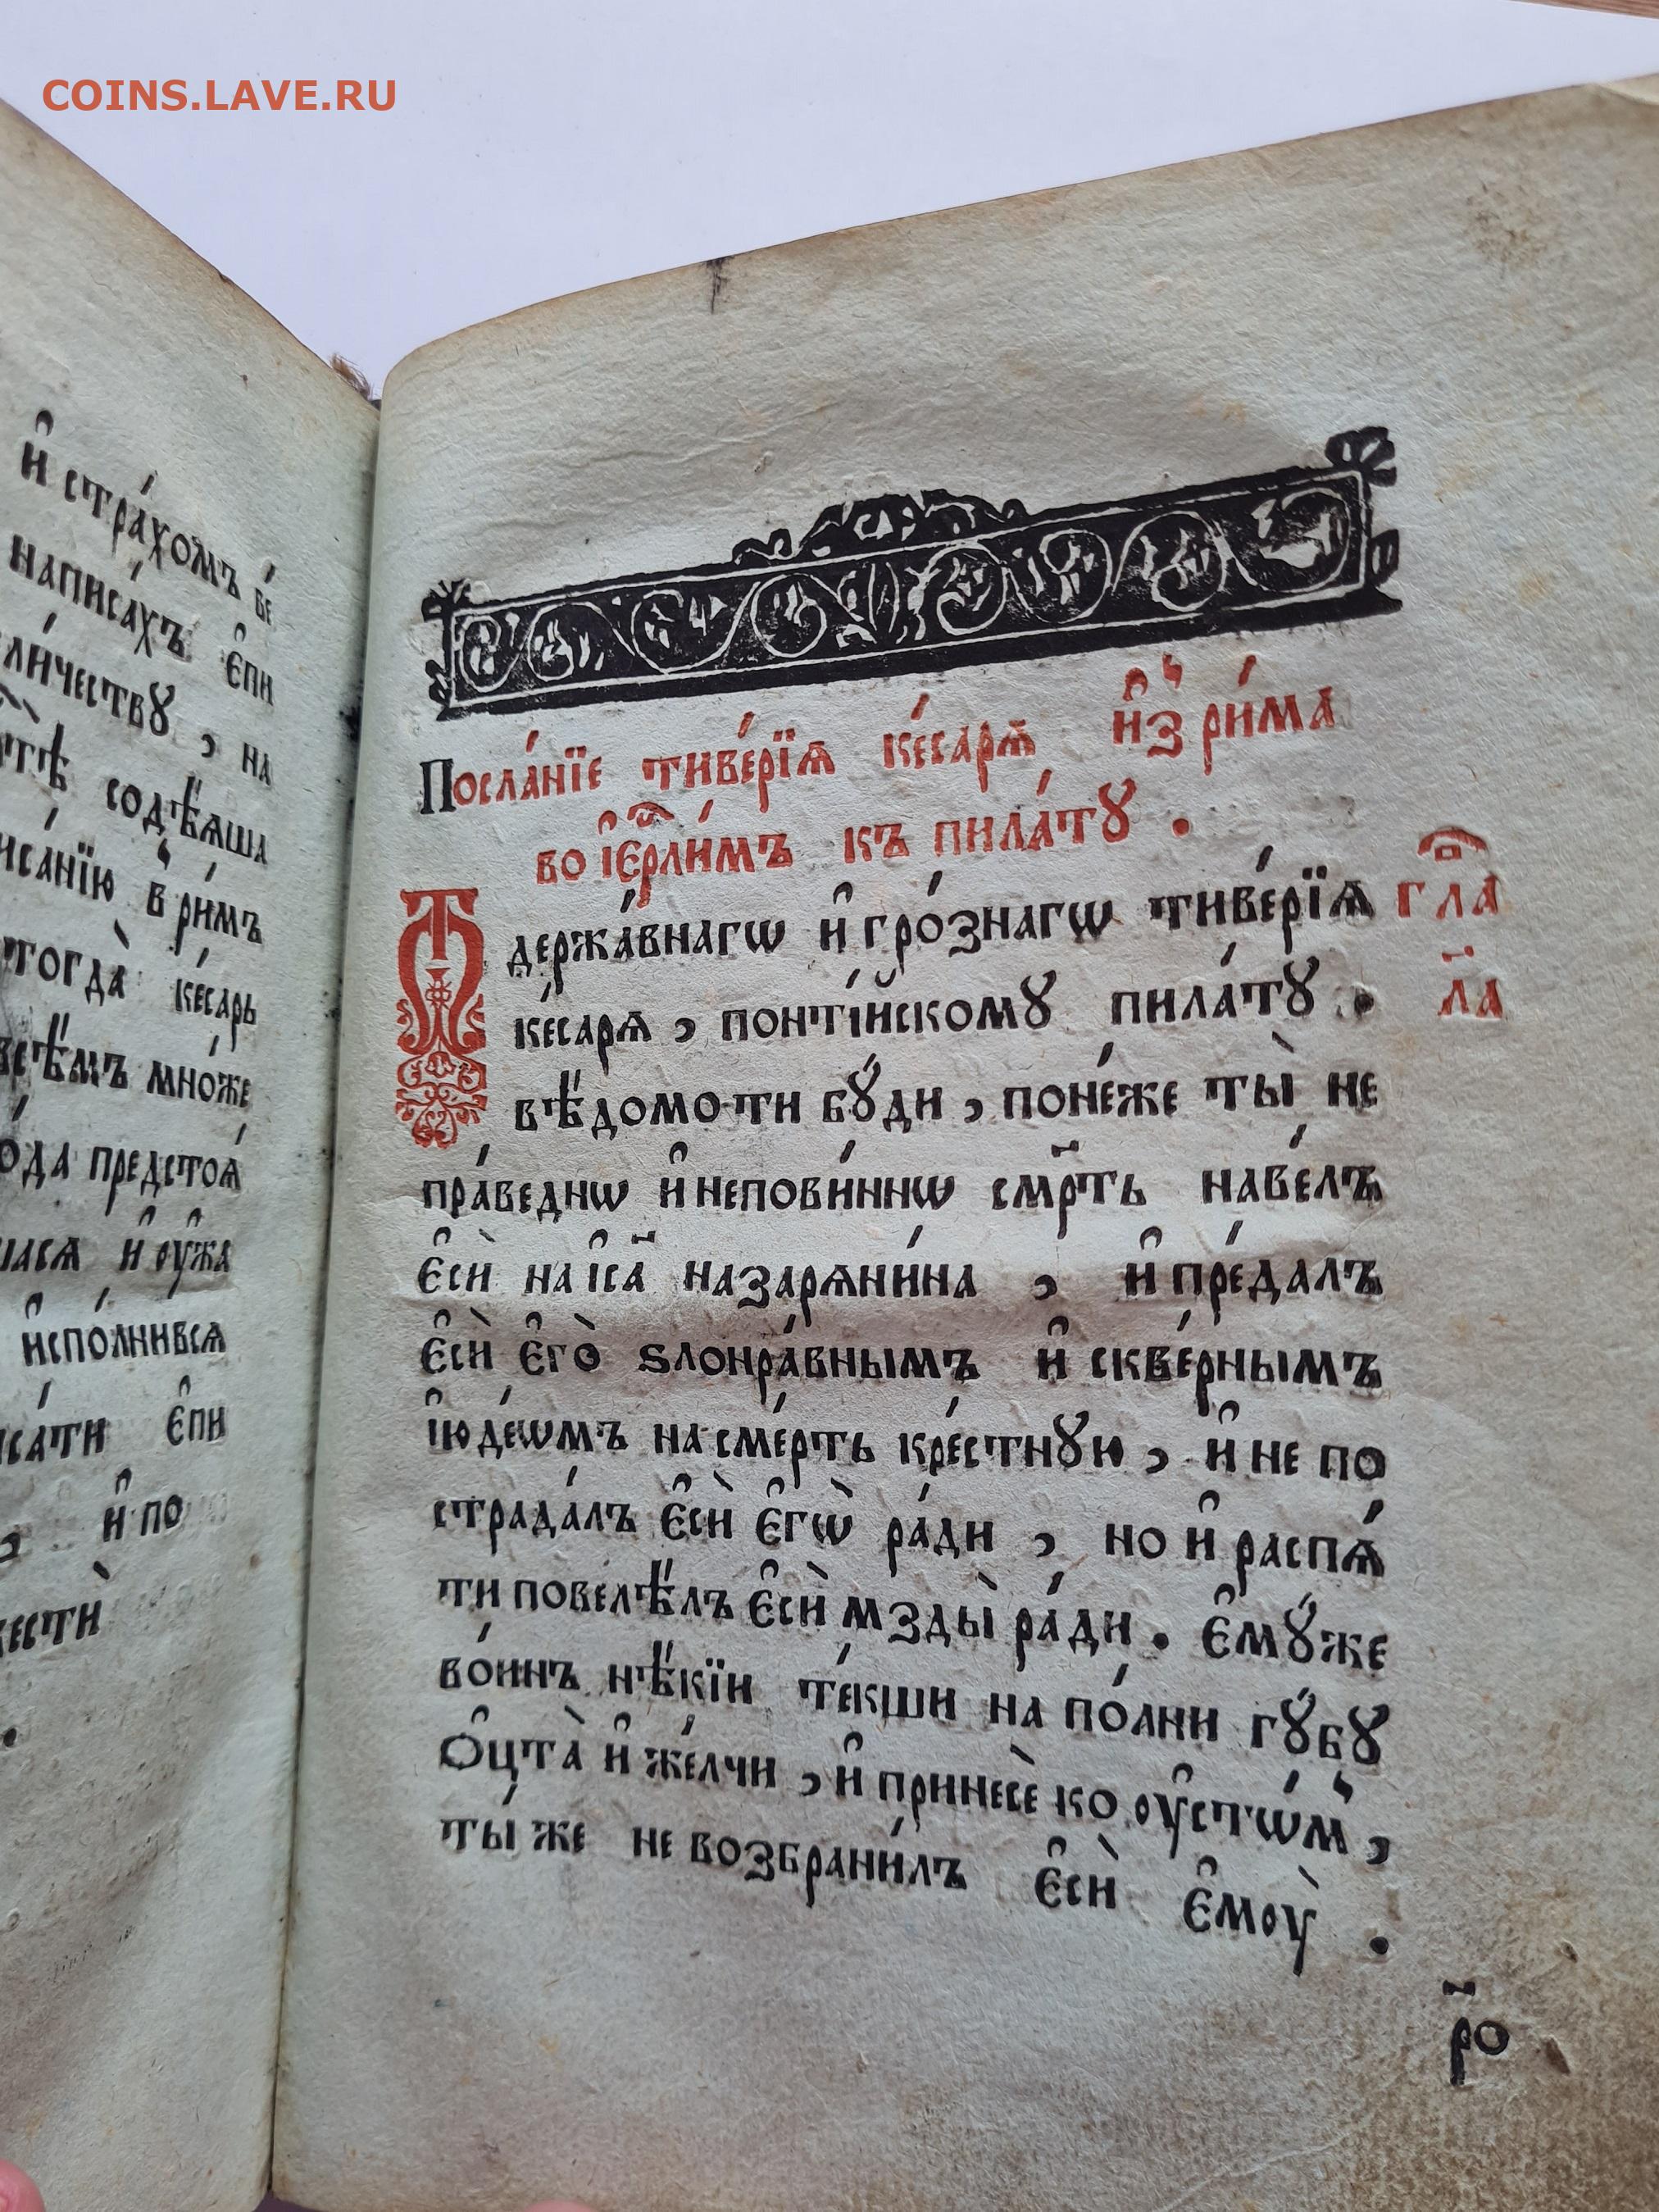 COINS.LAVE.RU
и҆ стра́хомъ бе́
написа́хъ є҆пи
ли́чествꙋ , на
содѣ́ѧша
иса́нїю в̾ ри́мъ
тогда̀ ке́сарь
всѣ́мъ мно́же
предстоѧ́
и҆ оу҆жа
и҆спо́лнивсѧ
са́ти є҆пи
и҆ по
Посла́нїе тиве́рїѧ ке́сарѧ и҆з̾ ри́ма
во і҆ер҇ли́мъ къ пила́тꙋ .
Т держа́внагѡ и҆ гро́знагѡ тиве́рїѧ гла҇
ке́сарѧ , понті́йскомꙋ пила́тꙋ . л҃а
вѣ́домо ти бꙋ́ди , поне́же ты̀ не
пра́веднѡ и҆ непови́ннѡ см҃рть наве́лъ
є҆сѝ на і҆са҃ назарѧни́на , и҆ пре́далъ
є҆сѝ є҆го̀ ѕлонра́внымъ и҆ скве́рнымъ
і҆юде́ѡмъ на сме́рть кре́стнꙋю , и҆ не по
страда́лъ є҆сѝ є҆гѡ̀ ра́ди , но и҆ распѧ́
ти повелѣ́лъ є҆сѝ мзды̀ ра́ди . є҆мꙋ́же
во́инъ нѣ́кїи те́кши на по́лни гꙋ́бꙋ
ѻ҆цта̀ и҆ же́лчи , и҆ принесѐ ко оу҆стѡ́м̾ ,
ты́ же не возбрани́лъ є҆сѝ є҆моу̀ .
р҃о